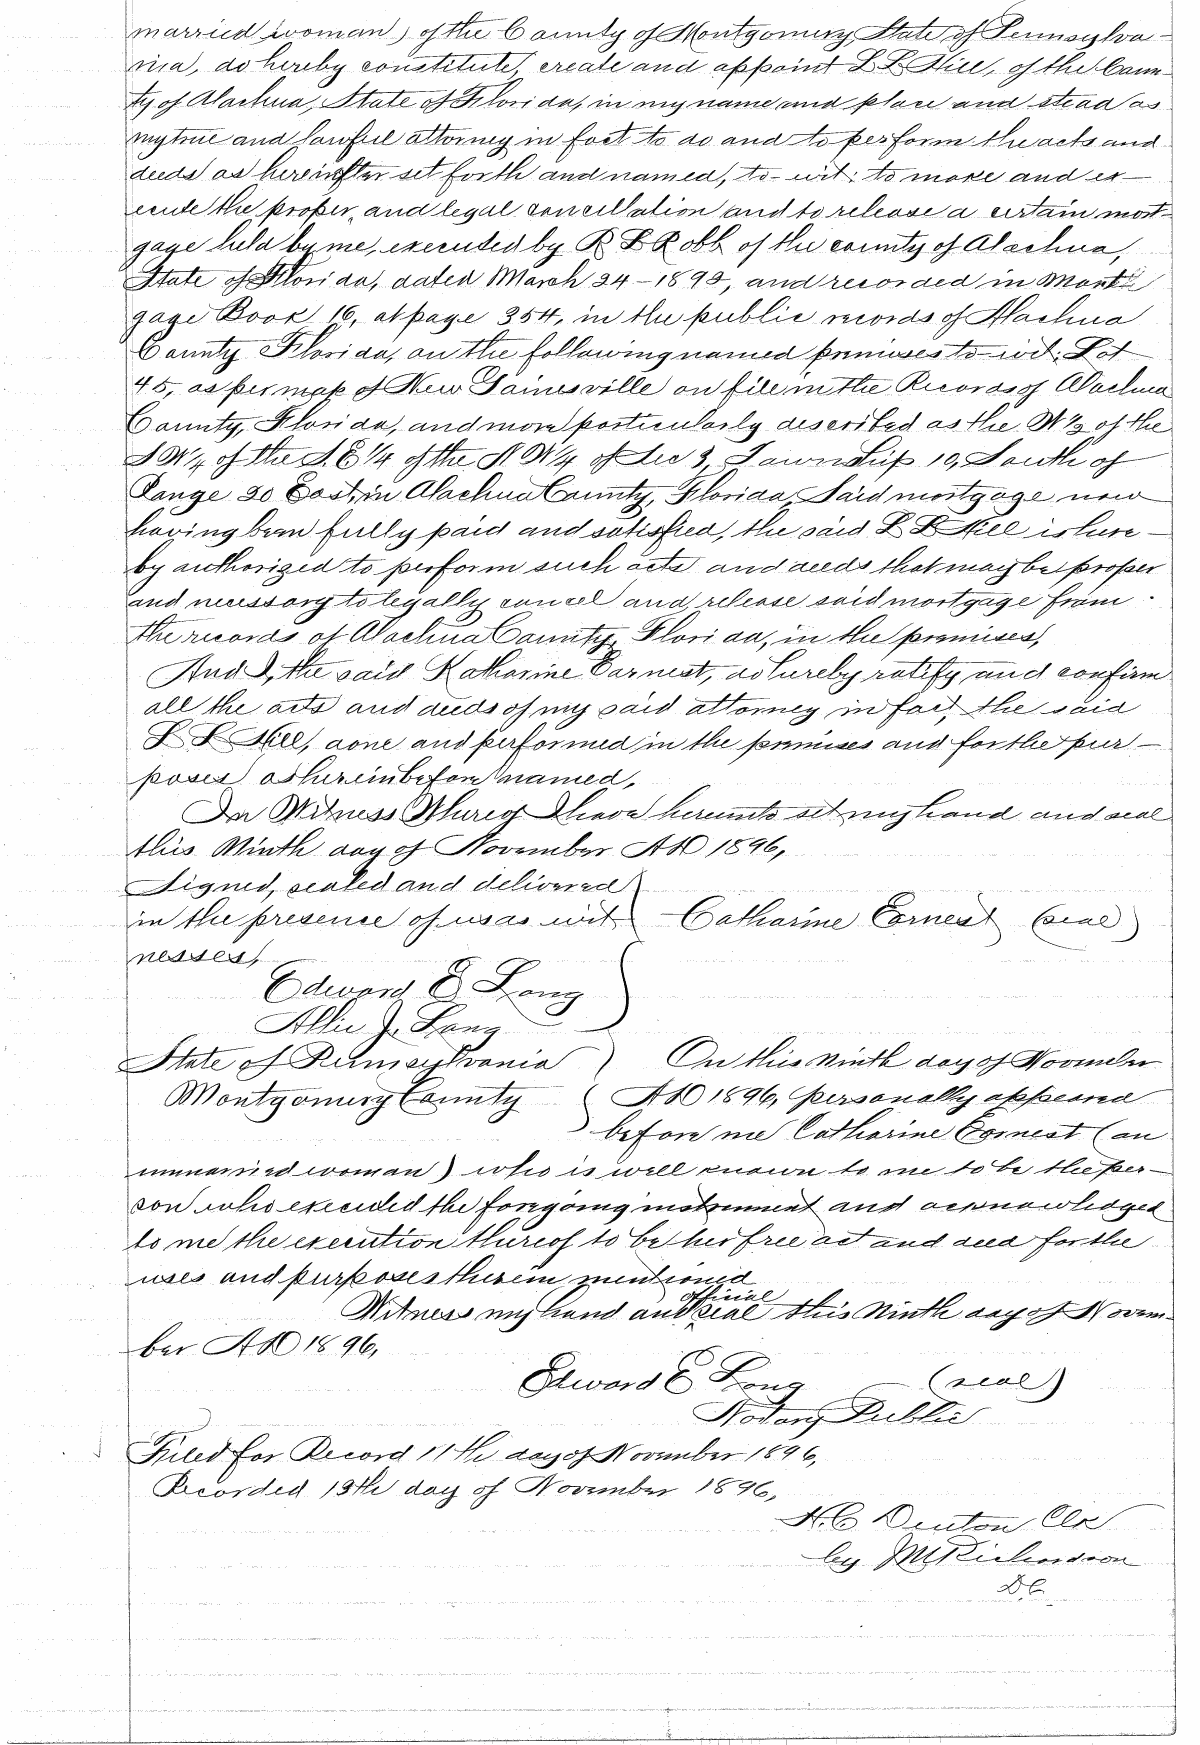 married woman) of the County of Montgomery, State of Pennsylva-
nia, do hereby constitute, create and appoint L L Hill, of the Coun-
ty of Alachua, State of Florida, in my name and place and stead as
my true and lawful attorney in fact to do and to perform the acts and
deeds as hereinafter set forth and named, to-wit: to make and ex-
ecute the proper, and legal cancellation and to release a certain mort-
gage held by me, executed by R L Robb of the county of Alachua,
State of Florida, dated March 24-1893, and recorded in Mort-
gage Book 16, at page 354, in the public records of Alachua
County Florida, on the following named premises to-wit: Lot
45, as per map of New Gainesville on file in the Records of Alachua
County, Florida, and more particularly described as the W½ of the
S W¼ of the S.E ¼ of the N W¼ of Sec 3, Township 10, South of
Range 20 East, in Alachua County, Florida, Said mortgage now
having been fully paid and satisfied, the said L L Hill is here-
by authorized to perform such acts and deeds that may be proper
and necessary to legally cancel and release said mortgage from
the records of Alachua County, Florida, in the premises,
And I, the said Katharine Earnest, do hereby ratify and confirm
all the acts and deeds of my said attorney in fact, the said
L L Hill, done and performed in the premises and for the pur-
poses as hereinbefore named,
In Witness Whereof I have hereunto set my hand and seal
this Ninth day of November AD 1896,
Signed, sealed and delivered
in the presence of us as wit- Catharine Earnest (seal)
nesses,
Edward E Long
Allie J. Long
State of Pennsylvania ) On this ninth day of November
Montgomery County ( AD 1896, personally appeared
) before me Catharine Earnest (an
unmarried woman) who is well known to me to be the per-
son who executed the foregoing instrument and acknowledged
to me the execution thereof to be her free act and deed for the
uses and purposes therein mentioned
official
Witness my hand and seal this ninth day of Novem-
ber AD 1896,
Edward E Long (seal)
Notary Public
Filed for Record 11th day of November 1896,
Recorded 13th day of November 1896,
H.C Denton Clk
by M Richardson
D.C.